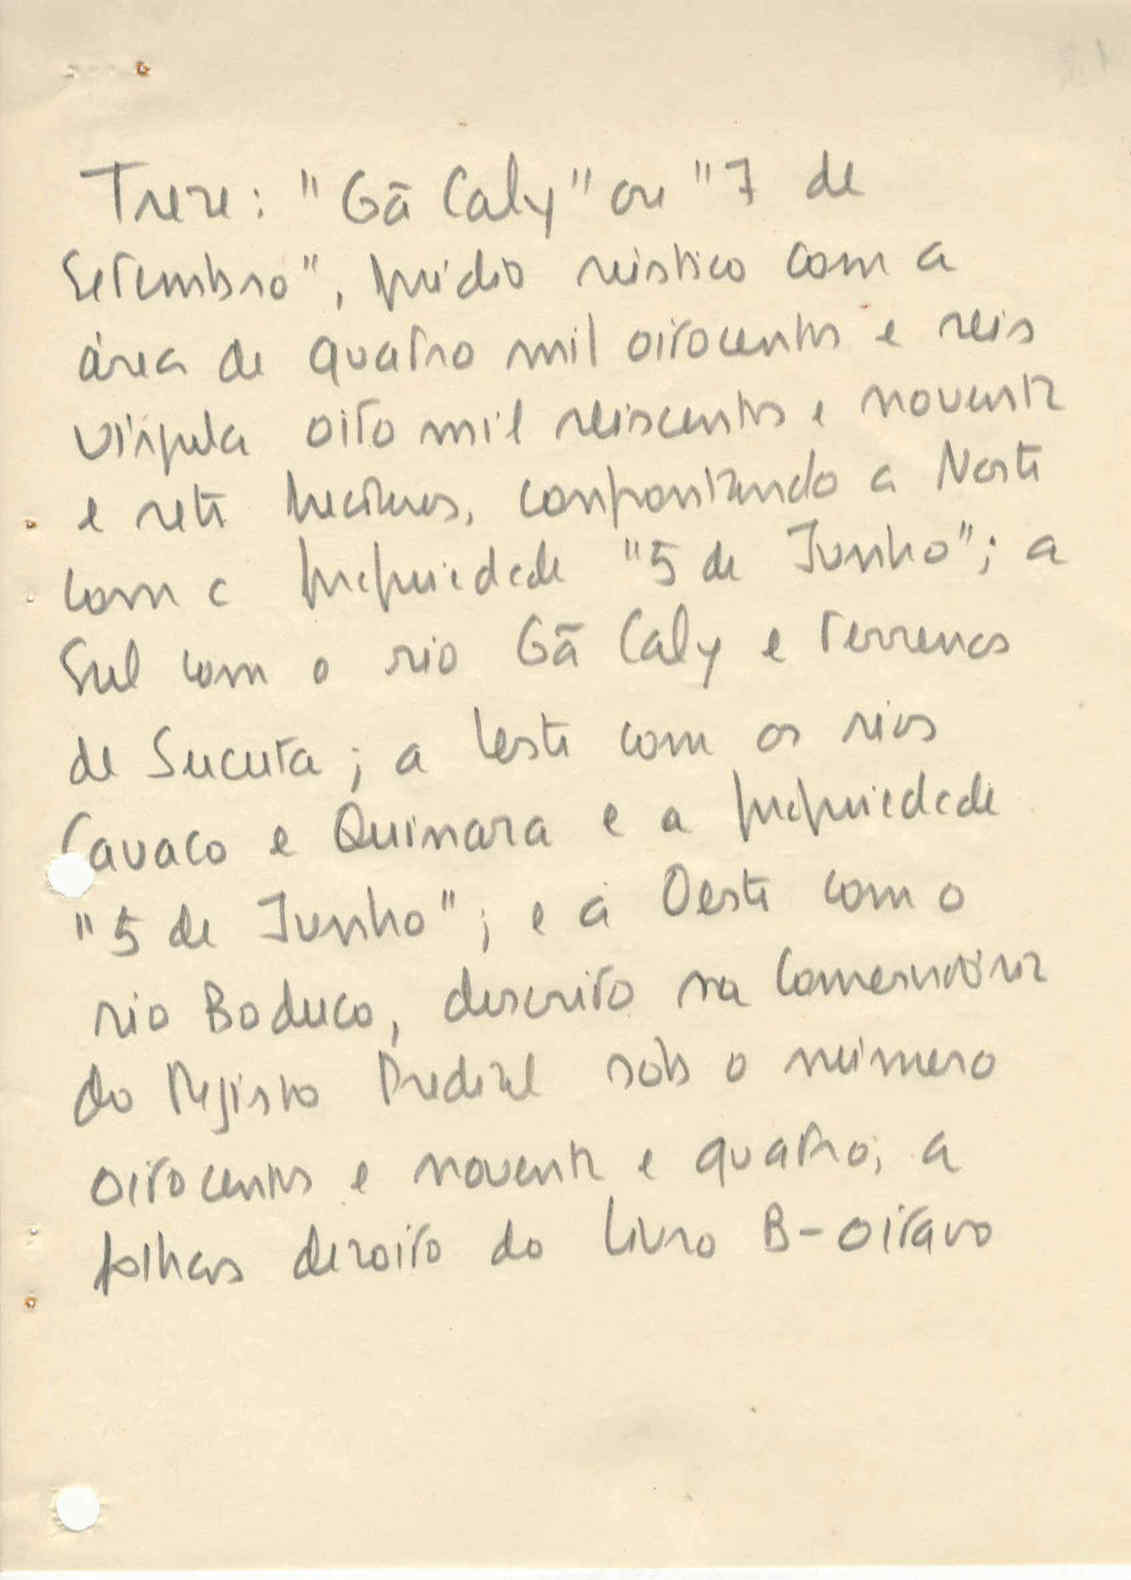 Treze: "Gã Caly" ou "7 de
Setembro", prédio rústico com a
área de quatro mil oitocentos e seis
vírgula oito mil seiscentos e noventa
e sete hectares, confrontando a Norte
com a propriedade "5 de Junho"; a
Sul com o rio Gã Caly e terrenos
de Sucuta; a Leste com os rios
Cavaco e Quinara e a propriedade
"5 de Junho"; e a Oeste com o
rio Boduco, descrito na Conservatória
do Registo Predial sob o número
oitocentos e noventa e quatro, a
folhas dezoito do Livro B-oitavo